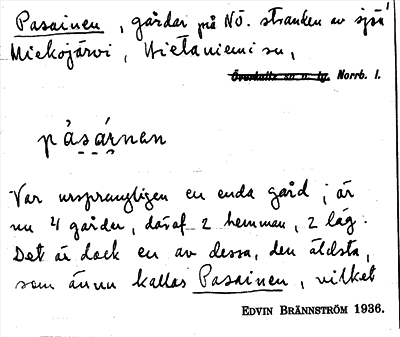 Pasainen, gårdar på NÖ. stranken av sjön
Miekojärvi, Hietaniemi sn,
Överkalix sn o. tg. Norrb. l.
påsárnen
Var ursprungligen en enda gård; är
nu 4 gårdar, däraf 2 hemman, 2 läg.
Det är dock en av dessa, den äldsta,
som ännu kallas Pasainen, vilket
EDVIN BRÄNNSTRÖM 1936.